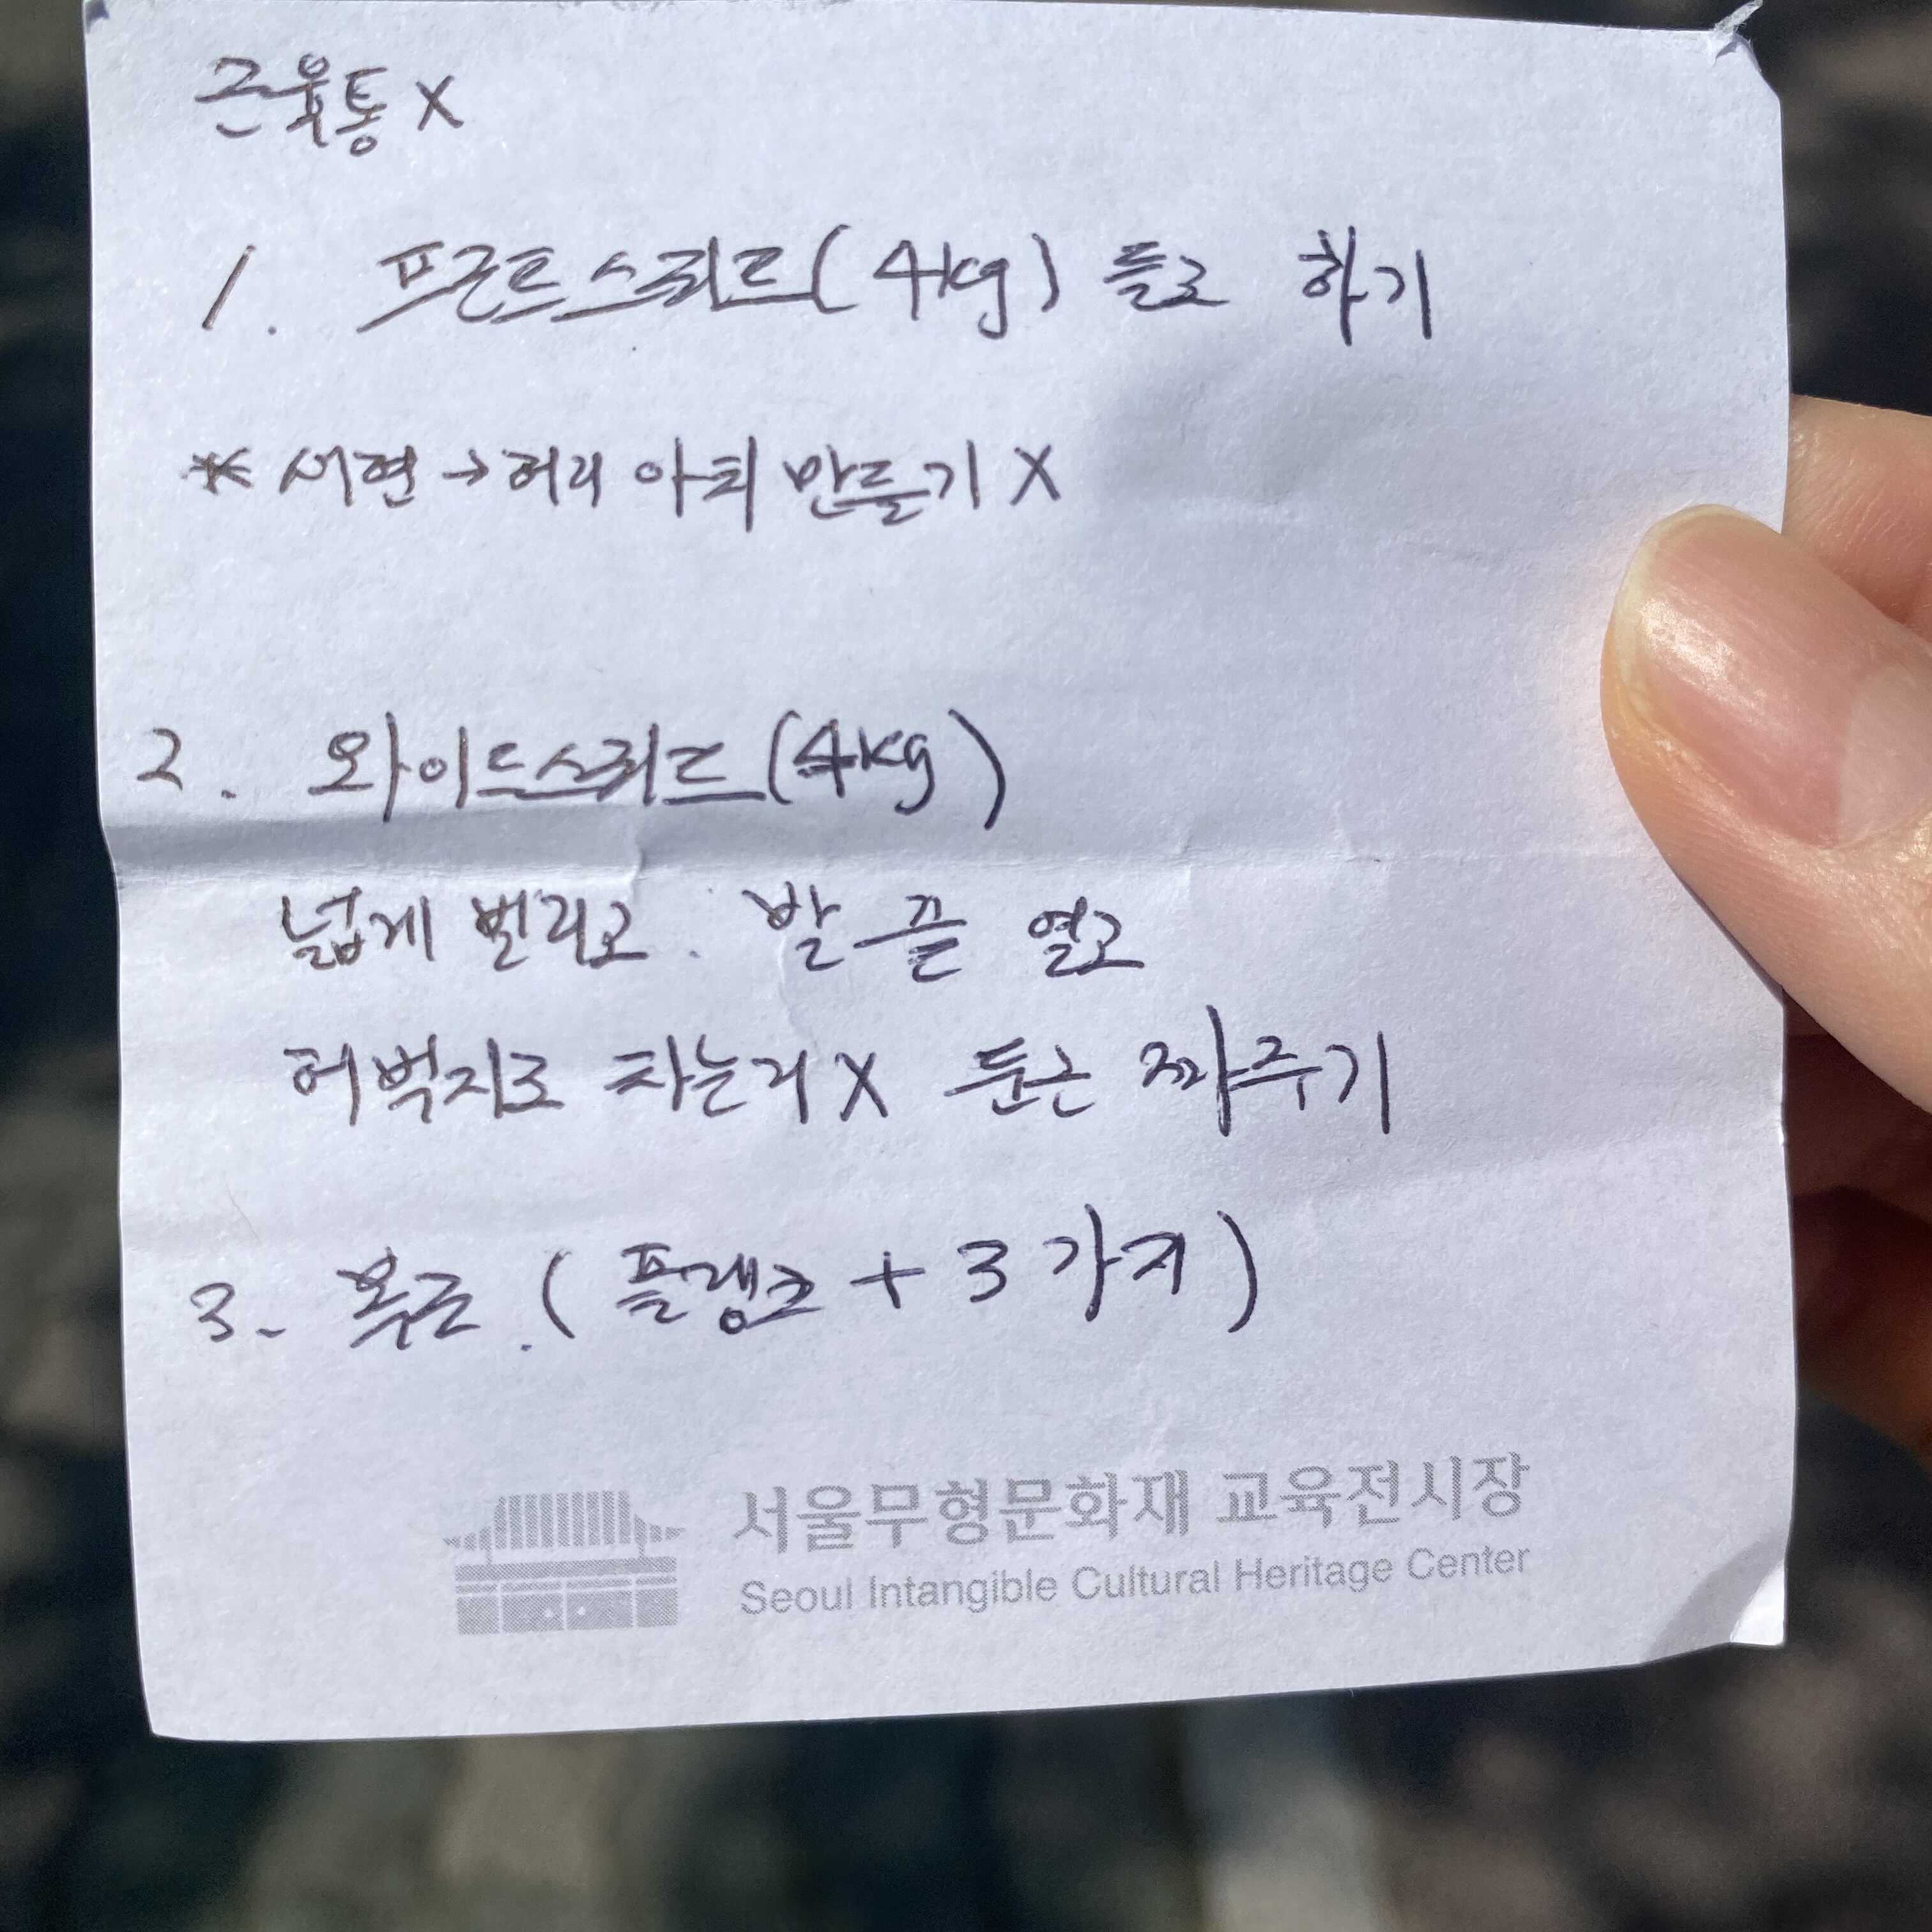 근육통 X
1. 프론트스쿼트(4kg) 들고 하기
* 서현 → 허리 아치 만들기 X
2. 와이드스쿼트(4kg)
넓게 벌리고. 발 끝 열고
허벅지로 차는거 X 둔근 짜주기
3. 복근. (플랭크 + 3가지)
서울무형문화재 교육전시장
Seoul Intangible Cultural Heritage Center